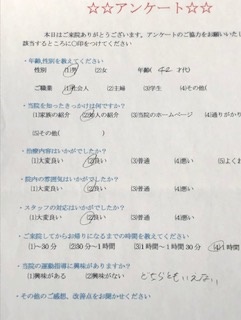 ☆☆アンケート☆☆
本日はご来院ありがとうございます。アンケートのご協力をお願いいたし
該当するところに○印をつけてください
・年齢,性別を教えてください
性別 (1)男 (2)女 年齢( 42 才代)
ご職業 (1)社会人 (2)主婦 (3)学生 (4)その他(
・当院を知ったきっかけは何ですか？
(1)家族の紹介 (2)知人の紹介 (3)当院のホームページ (4)通りがかり
(5)その他( )
・治療内容はいかがでしたか？
(1)大変良い (2)良い (3)普通 (4)悪い (5)よくわ
・院内の雰囲気はいかがでしたか？
(1)大変良い (2)良い (3)普通 (4)悪い
・スタッフの対応はいかがでしたか？
(1)大変良い (2)良い (3)普通 (4)悪い
・ご来院してからお帰りになるまでの時間を教えてください？
(1)～30分 (2)30分～1時間 (3)1時間～1時間30分 (4)1
・当院の運動指導に興味がありますか？
(1)興味がある (2)興味がない どちらともいえない
・その他のご感想、改善点をお聞かせください